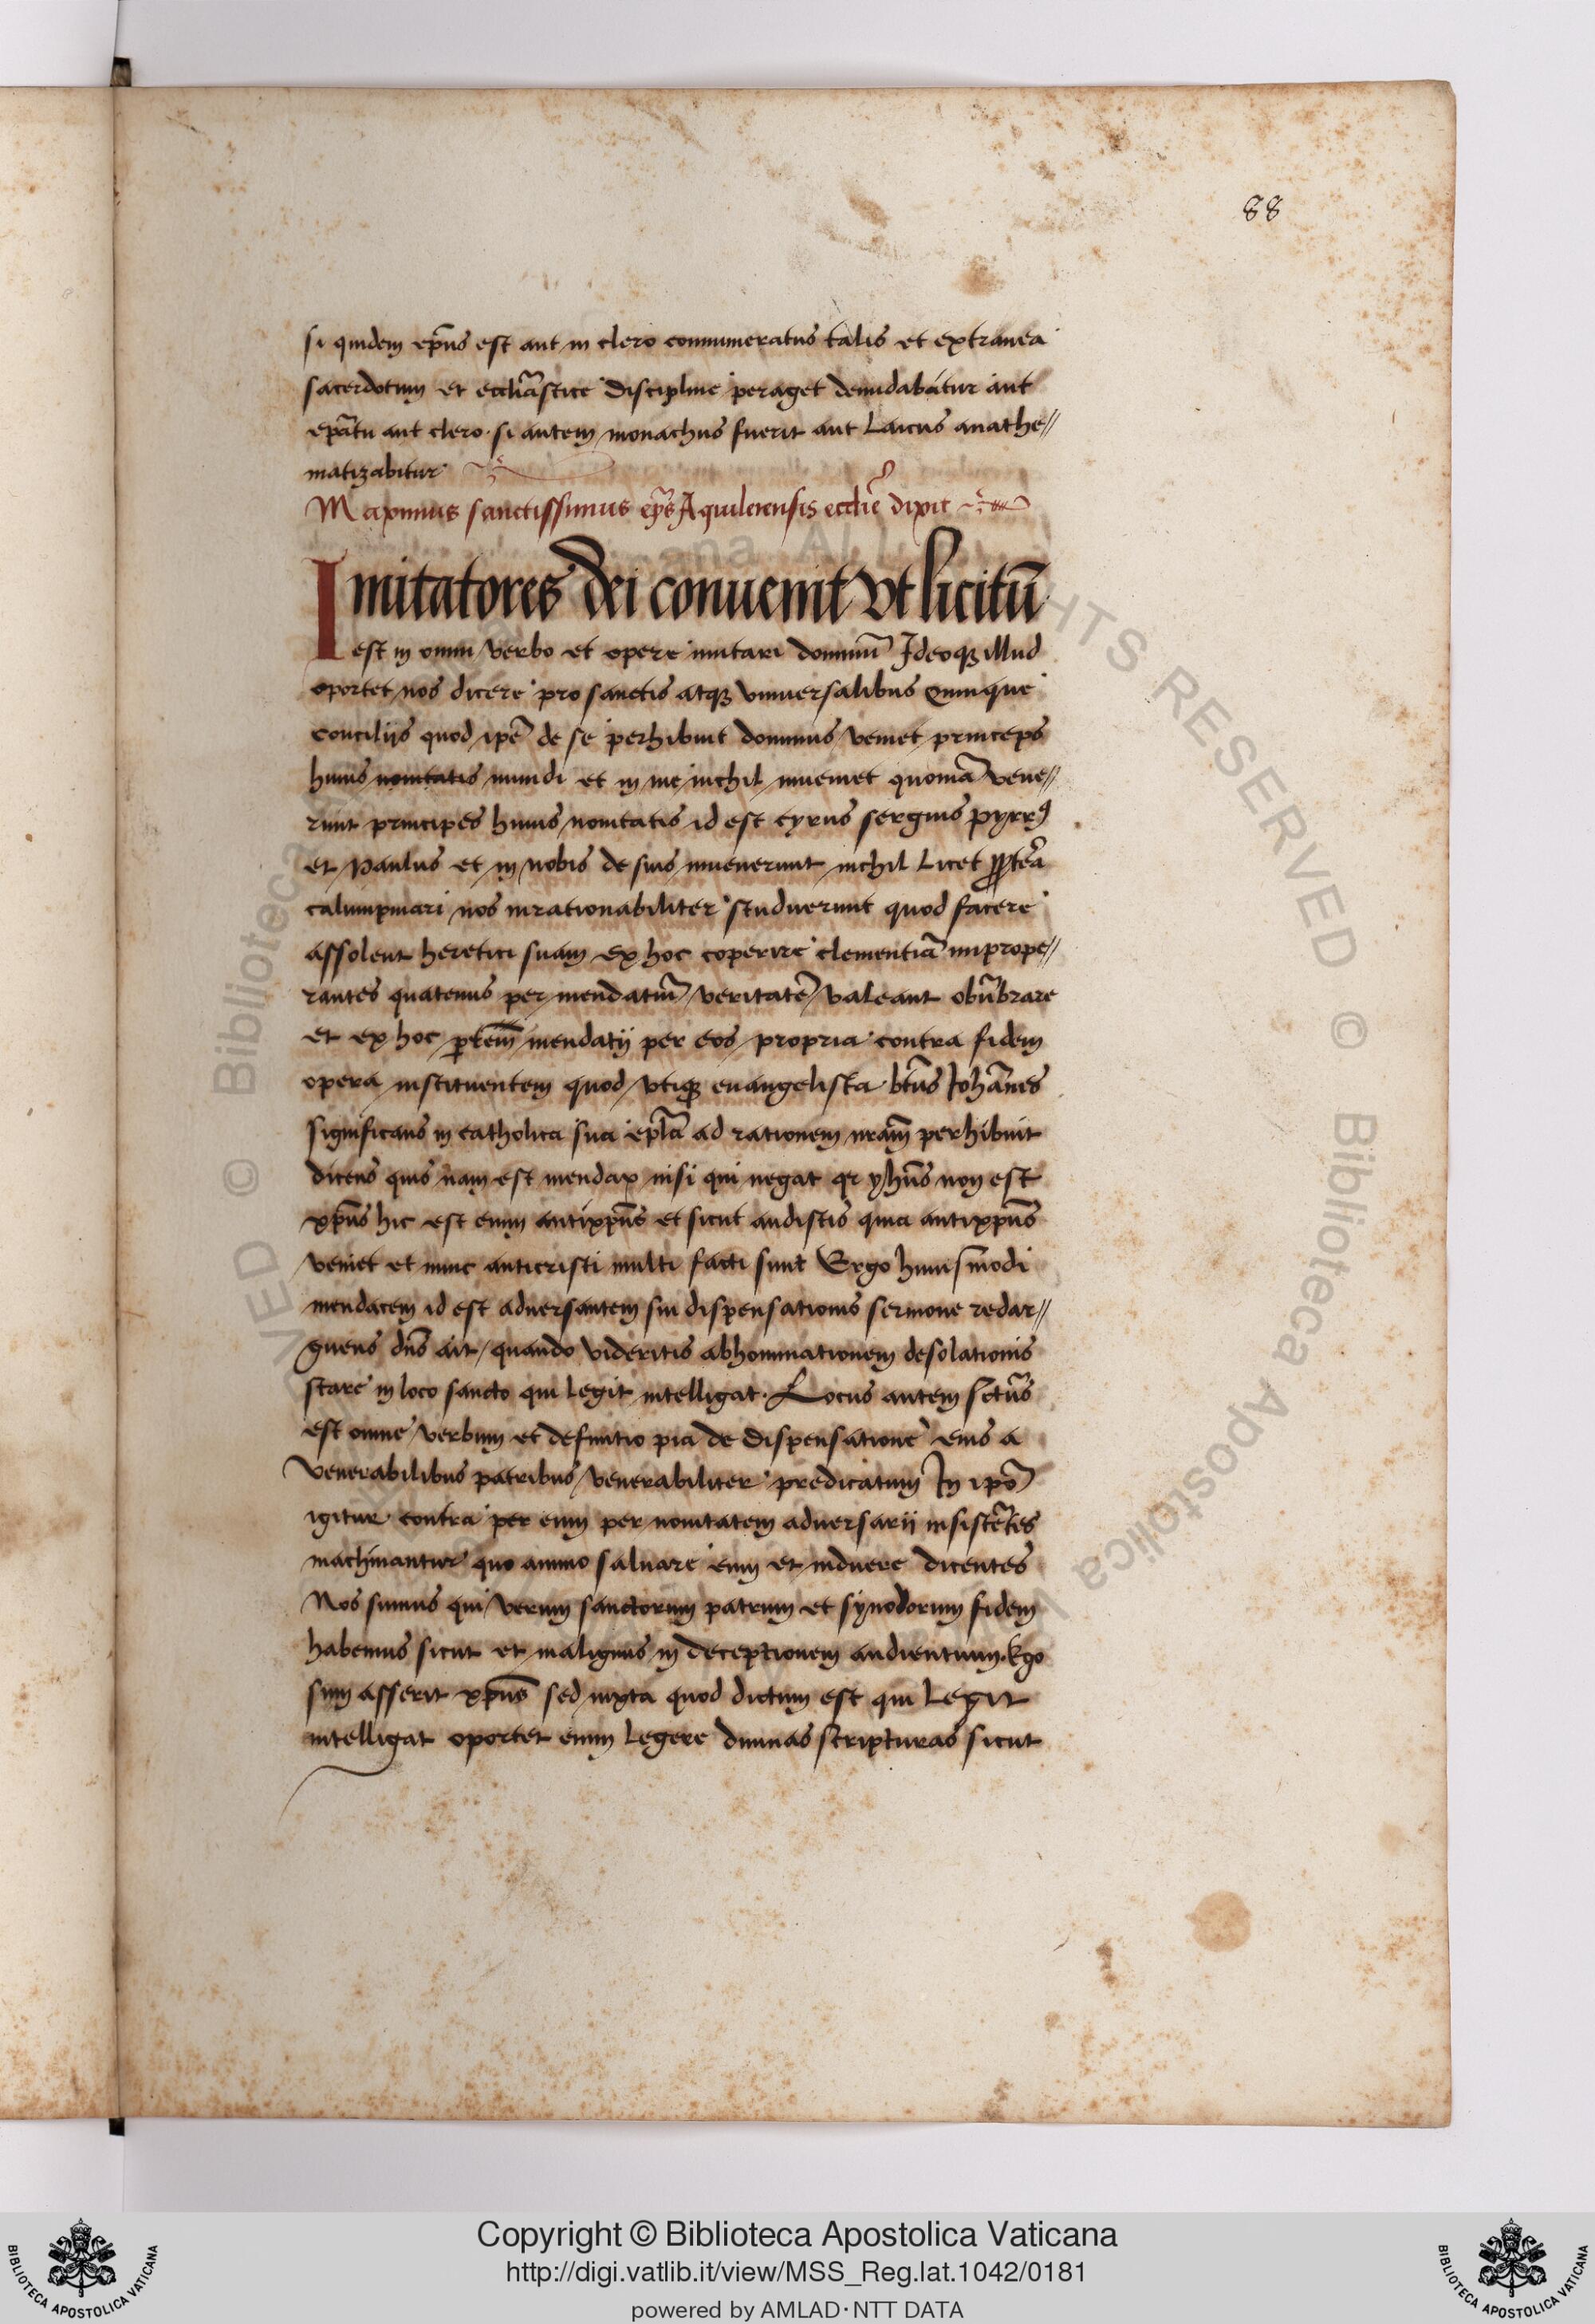 88
si quidem ep̄us est aut in clero connumeratus talis et extranea
sacerdotum et eccliāstice discipline peraget denudabitur aut
epātu aut clero. si autem monachus fuerit aut Laicus anathe//
matizabitur
Maximus sanctissimus ep̄s Aquileiensis ecclīe dixit
Imitatores dei conuenit vt licitū
est in omni verbo et opere imitari dominū Ideoqꝫ illud
oportet nos dicere pro sanctis atqꝫ vniuersalibus quinque
concilijs quod ip̄e de se perhibuit dominus veniet princeps
huius nouitatis mundi et in me nichil inueniet quoniā vene//
runt principes huius nouitatis id est cyrus sergius pyrrꝰ
et Paulus et in nobis de suis inuenerunt nichil Licet
calumpniari nos inrationabiliter studuerunt quod facere
assolent heretici suam ex hoc coperire clementiā imprope//
rantes quatenus per mendatiū veritatē valeant obūbrare
et ex hoc mendatij per eos propria contra fidem
opera instituentem quod vtiqꝫ euangelista bt̄us Iohānes
significans in catholica sua epl̄a ad rationem nrām perhibuit
dicens quis nam est mendax nisi qui negat qr yhūs non est
xp̄us hic est enim antixp̄us et sicut audistis quia antixp̄us
veniet et nunc anticristi multi facti sunt Ergo huiusmodi
mendacem id est aduersantem sui dispensationis sermone redar//
guens dn̄s ait quando videritis abhominationem desolationis
stare in loco sancto qui legit intelligat. Locus autem sctūs
est omne verbum et definitio pia de dispensatione eius a
venerabilibus patribus venerabiliter predicatum In ip̄o
igitur contra per eum per nouitatem aduersarij insistētes
machinantur quo animo saluare eum et induere dicentes
Nos sumus qui verum sanctorum patrum et synodorum fidem
habemus sicut et malignus in deceptionem audientium. Ego
sum asserit xp̄us sed iuxta quod dictum est qui Legit
intelligat oportet enim legere diuinas scripturas sicut
Copyright © Biblioteca Apostolica Vaticana
http://digi.vatlib.it/view/MSS_Reg.lat.1042/0181
powered by AMLAD·NTT DATA
BIBLIOTECA APOSTOLICA VATICANA
BIBLIOTECA APOSTOLICA VATICANA